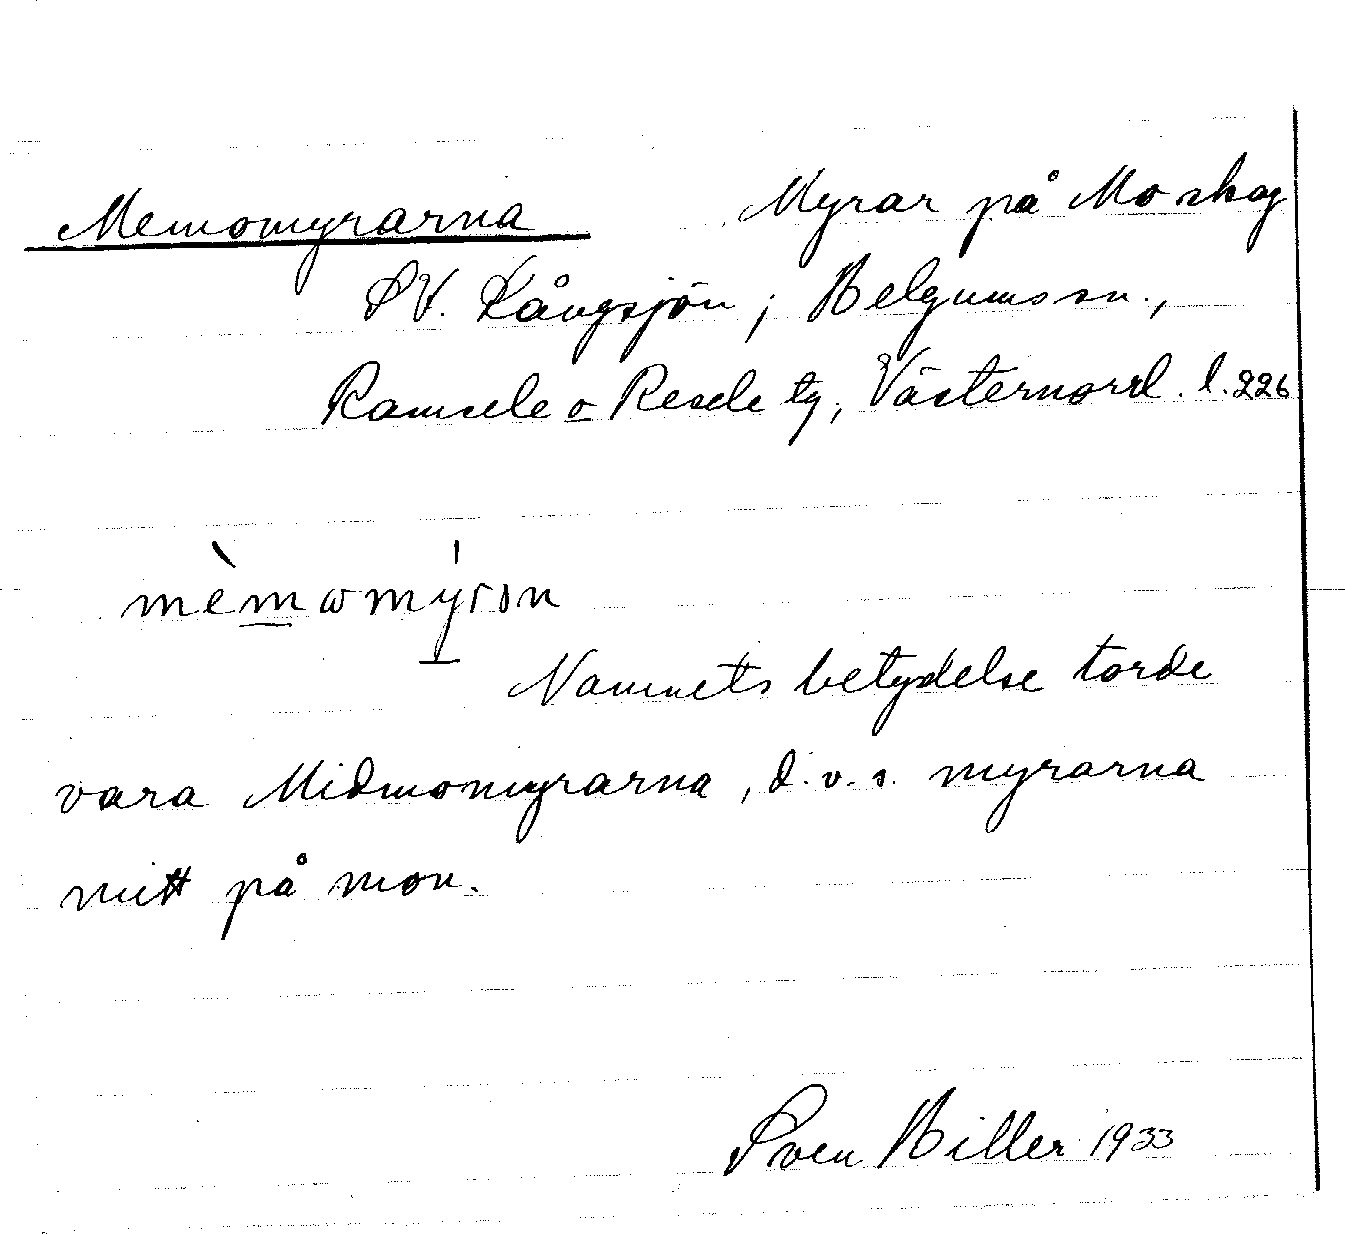 Memomyrarna Myrar på Mo skog
SV. Långsjön; Helgums sn.,
Ramsele o Resele tg, Västernorrl. l. 226
mèmωmýrɷn
Namnets betydelse torde
vara Midmomyrarna, d.v.s. myrarna
mitt på mon.
Sven Hiller 1933